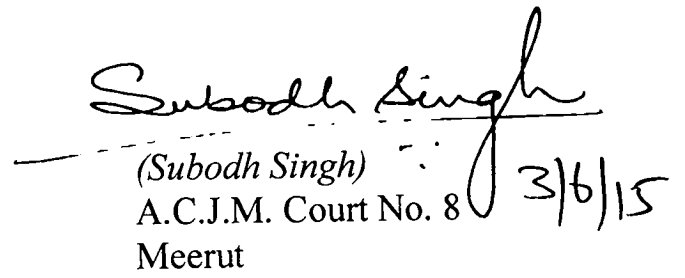 Subodh Singh
(Subodh Singh)
A.C.J.M. Court No. 8 3/6/15
Meerut